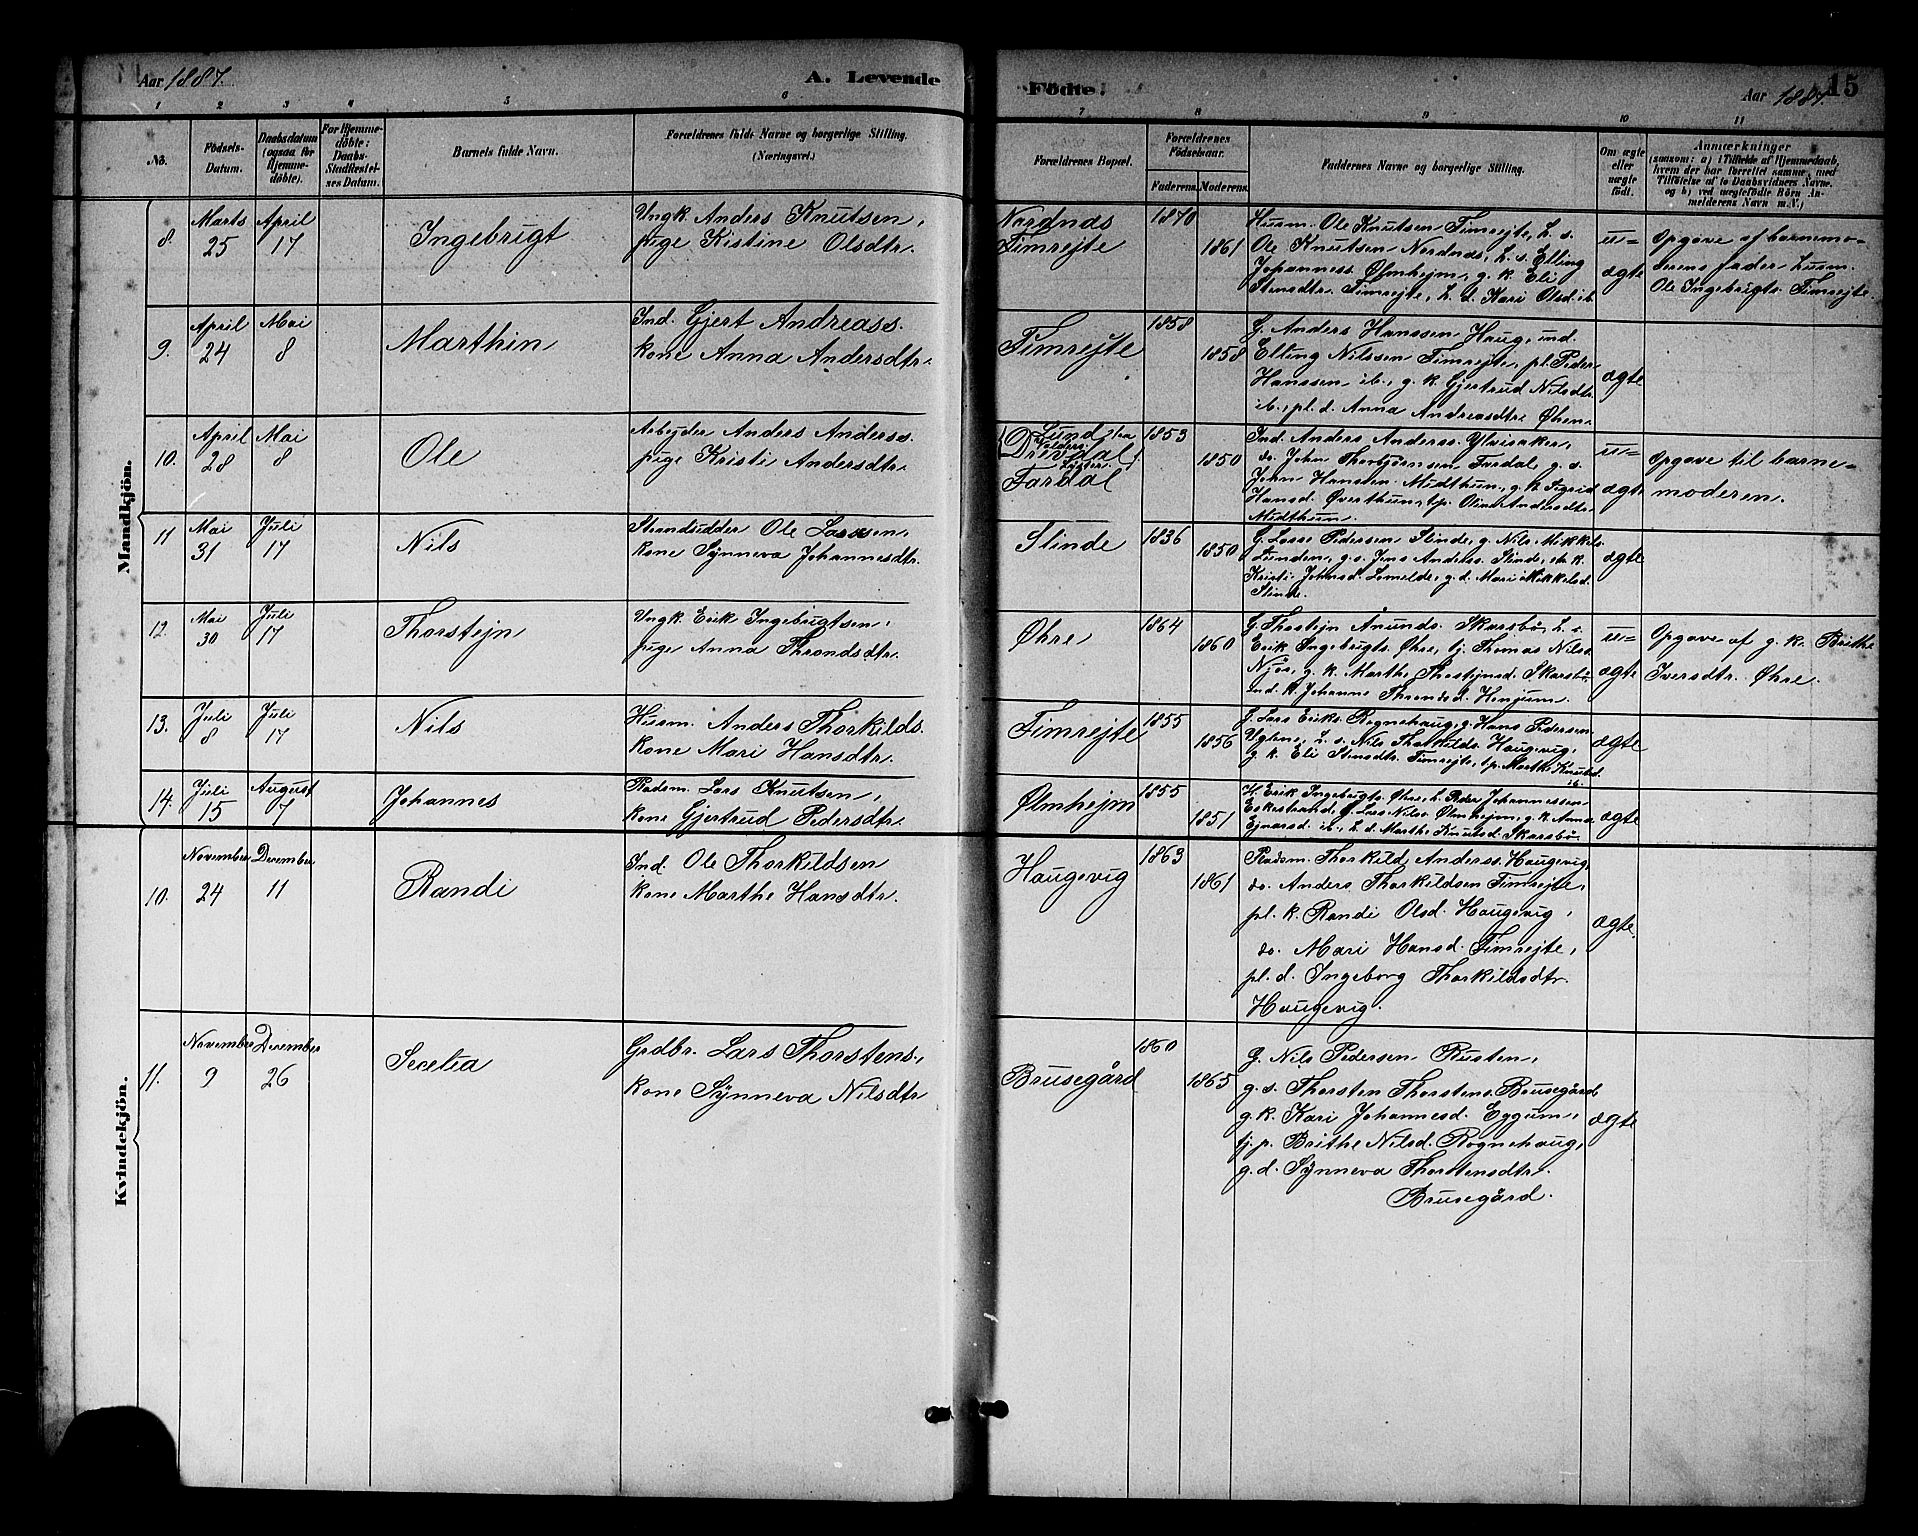 Aar 1887.
A. Levende
Fødte.
Aar 1887.
15
1 2 3 4 5 6 7 8 9 10 11
No.
Fødsels-
Datum.
Daabsdatum
(ogsaa for
Hjemme-
døbte).
For Hjemme-
døbte:
Daabs-
Stadfæstel-
ses Datum.
Barnets fulde Navn.
Forældrenes fulde Navne og borgerlige Stilling.
(Næringsvei.)
Forældrenes Bopæl.
Forældrenes
Fødselsaar.
Faderens. Moderens.
Faddernes Navne og borgerlige Stilling.
Om ægte
eller
uægte
født.
Anmærkninger
(saasom: a) i Tilfælde af Hjemmedaab,
hvem der har forrettet samme, med
Tilføielse af to Daabsvidners Navne,
og b) ved uægtefødte Børn An-
melderens Navn m. V.)
Mandkjön.
8.
Marts
25
April
17
Ingebrigt
Ungk. Anders Knutsen,
pige Kistine Olsdtr.
Nordnæs
Fimrejte
1870
1861
Husm. Ole Knutsen Fimrejte, h. s.
Ole Knutsen Nordnæs, h. s. Elling
Johanness. Ølmhejm, g. k. Eli
Stensdtr. Fimrejte, h. d. Kari Olsd. ib.
u=
ægte
Opgave af barnemo-
derens fader husm.
Ole Ingebrigts. Fimrejte.
9.
April
24
Mai
8
Marthin
Ind. Gjert Andreass.
kone Anna Andersdtr.
Fimrejte
1858
1858
G. Anders Hanssen Haug, ind.
Elling Nilssen Fimrejte, pl. Peder
Hanssen ib., g. k. Gjertrud Nilsdtr.
ib., pl. d. Anna Andreasdtre Øhren.
ægte
10.
April
28
Mai
8
Ole
Arbejder Anders Anderss.
pige Kristi Andersdtr.
Lund fra
Valders
Drevdal
Lyster.
Fardal
1853
1850
Ind. Anders Anderss. Ylvisaker,
do. John Thorbjørnsen Fardal, g. s.
John Hanssen Midthun, g. k. Sigrid
Hansd. Øverthun, tp. Oline Andersdtr.
Midthun.
u=
ægte
Opgave til barne=
moderen.
11
Mai
31
Juli
17
Nils
Strandsidder Ole Larssen,
kone Synneva Johannesdtr.
Slinde
1836
1850
G. Lasse Pedersen Slinde, g. Nils Mikkels.
Lunden, g. s. Jens Anderss. Slinde, g. k.
Kristi Johnsd. Lomelde, g. d. Mari Mikkelsd.
Slinde.
ægte
12.
Mai
30
Juli
17
Thorstejn
Ungk. Erik Ingebrigtsen,
pige Anna Throndsdtr.
Øhre
1864
1860
G. Thostejn Anunds. Skarsbø, h. s.
Erik Ingebrigts. Øhre, tj. Thomas Nilss.
Njøs, g. k. Marthe Thostejnsd. Skarsbø,
ind. k. Johanne Throndsd. Henjum.
u=
ægte
Opgave af g. k. Brithe
Iversdtr. Øhre.
13.
Juli
8
Juli
17
Nils
Husm. Anders Thorkilds.
kone Mari Hansdtr.
Fimrejte
1855
1856
G. Lars Eriks. Rognehaug, g. Hans Pedersen
Uglene, h. s. Nils Thorkilds. Haugevig,
g. k. Eli Stensdtr. Fimrejte, tp. Marthe Knutsd.
ib.
ægte
14.
Juli
15
August
7
Johannes
Pladsm. Lars Knutsen,
kone Gjertrud Pedersdtr.
Ølmhejm
1855
1851
H. Erik Ingebrigts. Øhre, h. Peder Johannessen
Eskestrand, g. Lars Nilss. Ølmhejm, g. k. Anna
Ejnarsd. ib., h. d. Marthe Knutsd. Skarsbø.
ægte
Kvindekjön.
10.
November
24
December
11
Randi
Ind. Ole Thorkildsen
kone Marthe Hansdtr.
Haugevig
1863
1861
Pladsm. Thorkild Anderss. Haugevig,
do. Anders Thorkildsen Fimrejte,
pl. k. Randi Olsd. Haugevig,
do. Mari Hansd. Fimrejte,
pl. d. Ingeborg Thorkildsdtr.
Haugevig.
ægte.
11.
November
9
December
26
Secelia
Grdbr. Lars Thorstens.,
kone Synneva Nilsdtr
Brusegård
1860
1865
G. Nils Pedersen Rusten,
g. s. Thorsten Thorstens. Brusegård
g. k. Kari Johannesd. Eggum,
tj. p. Brithe Nilsd. Rognehaug,
g. d. Synneva Thorstensdtr.
Brusegård.
ægte